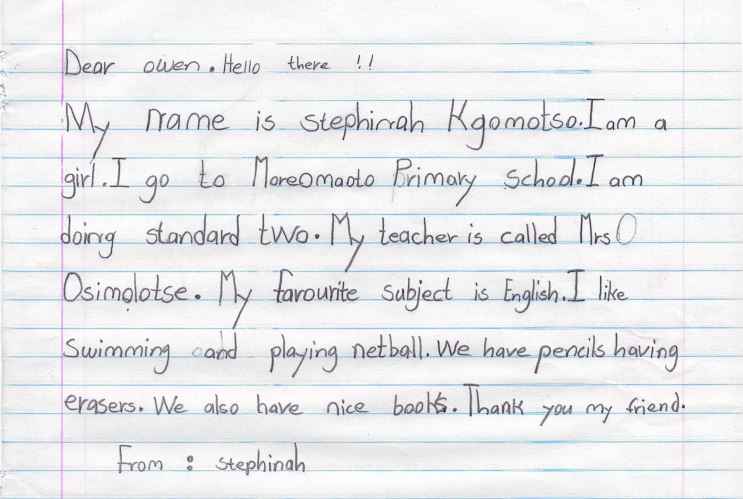 Dear owen. Hello there !!
My name is stephinah Kgomotso. I am a
girl. I go to Moreomaoto Primary School. I am
doing standard two. My teacher is called Mrs O
Osimolotse. My favourite subject is English. I like
Swimming and playing netball. We have pencils having
erasers. We also have nice books. Thank you my friend.
From : stephinah